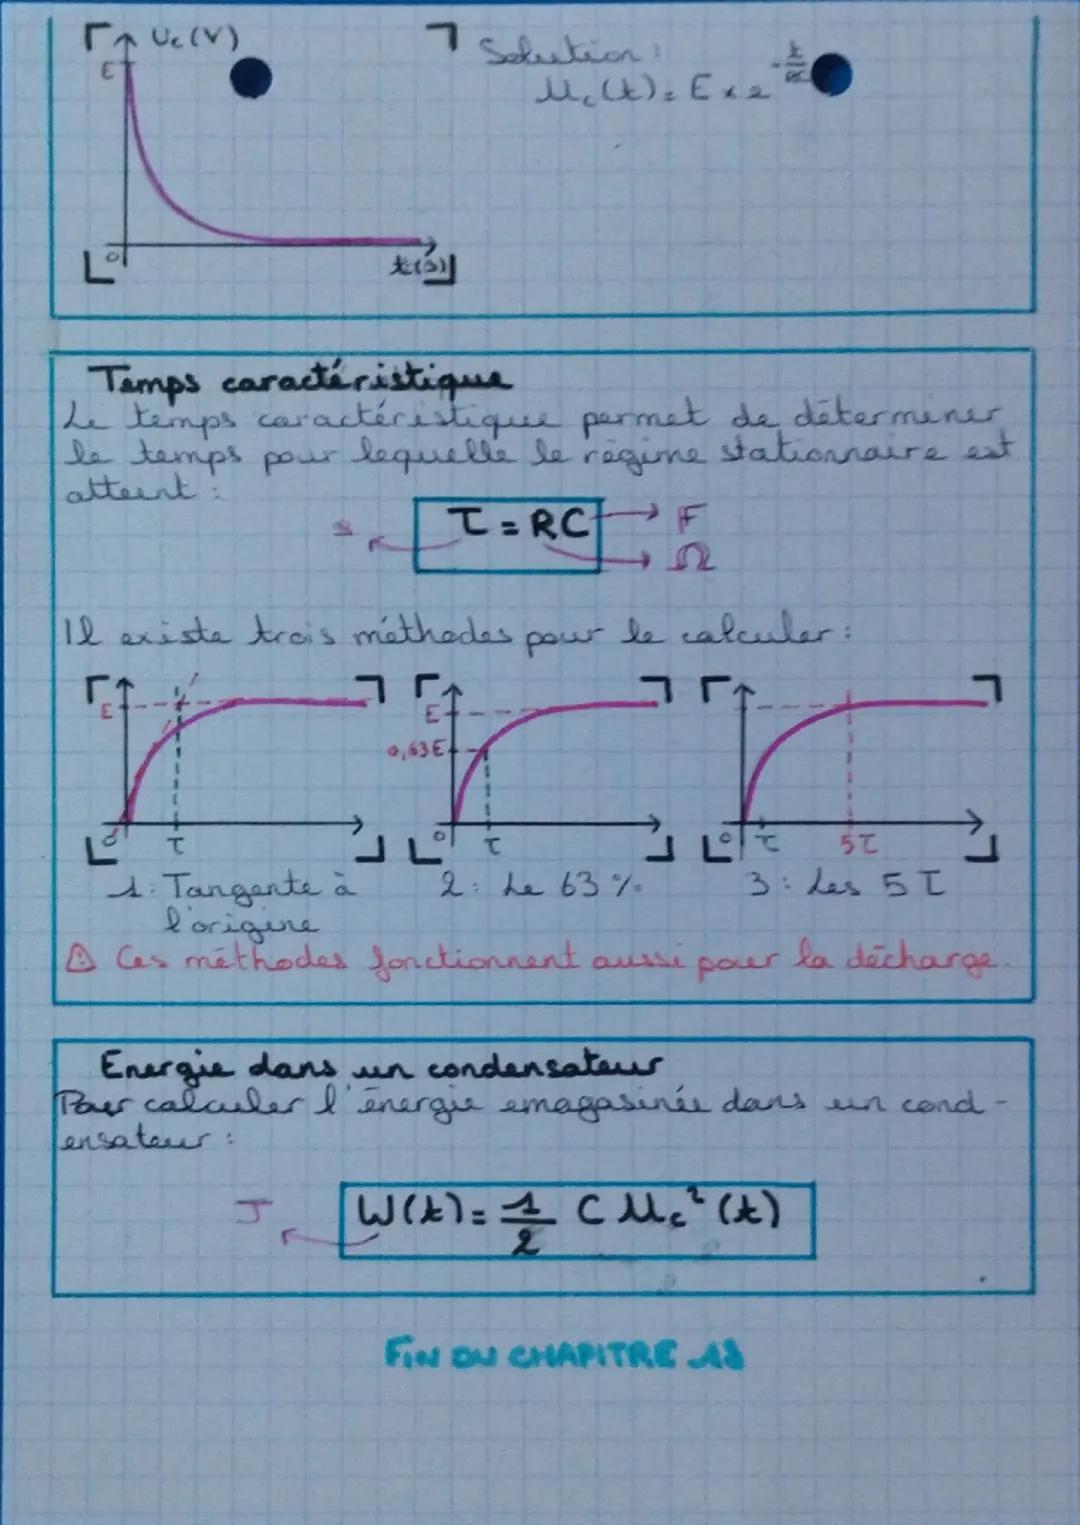 Uc(V)
E
0
t(s)
Solution :
Uc(t) = E x e^-t/RC
Temps caractéristique
Le temps caractéristique permet de déterminer
le temps pour lequelle le régime stationnaire est
atteint :
s
τ = RC
F
Ω
Il existe trois méthodes pour le calculer :
E
0
τ
E
0,63E
0
τ
0
τ
5τ
1 : Tangente à
l'origine
2 : Le 63 %
3 : Les 5 τ
⚠ Ces méthodes fonctionnent aussi pour la décharge.
Energie dans un condensateur
Pour calculer l'énergie emagasinée dans un cond-
ensateur :
J
W(t) = 1/2 C Uc²(t)
FIN DU CHAPITRE 18